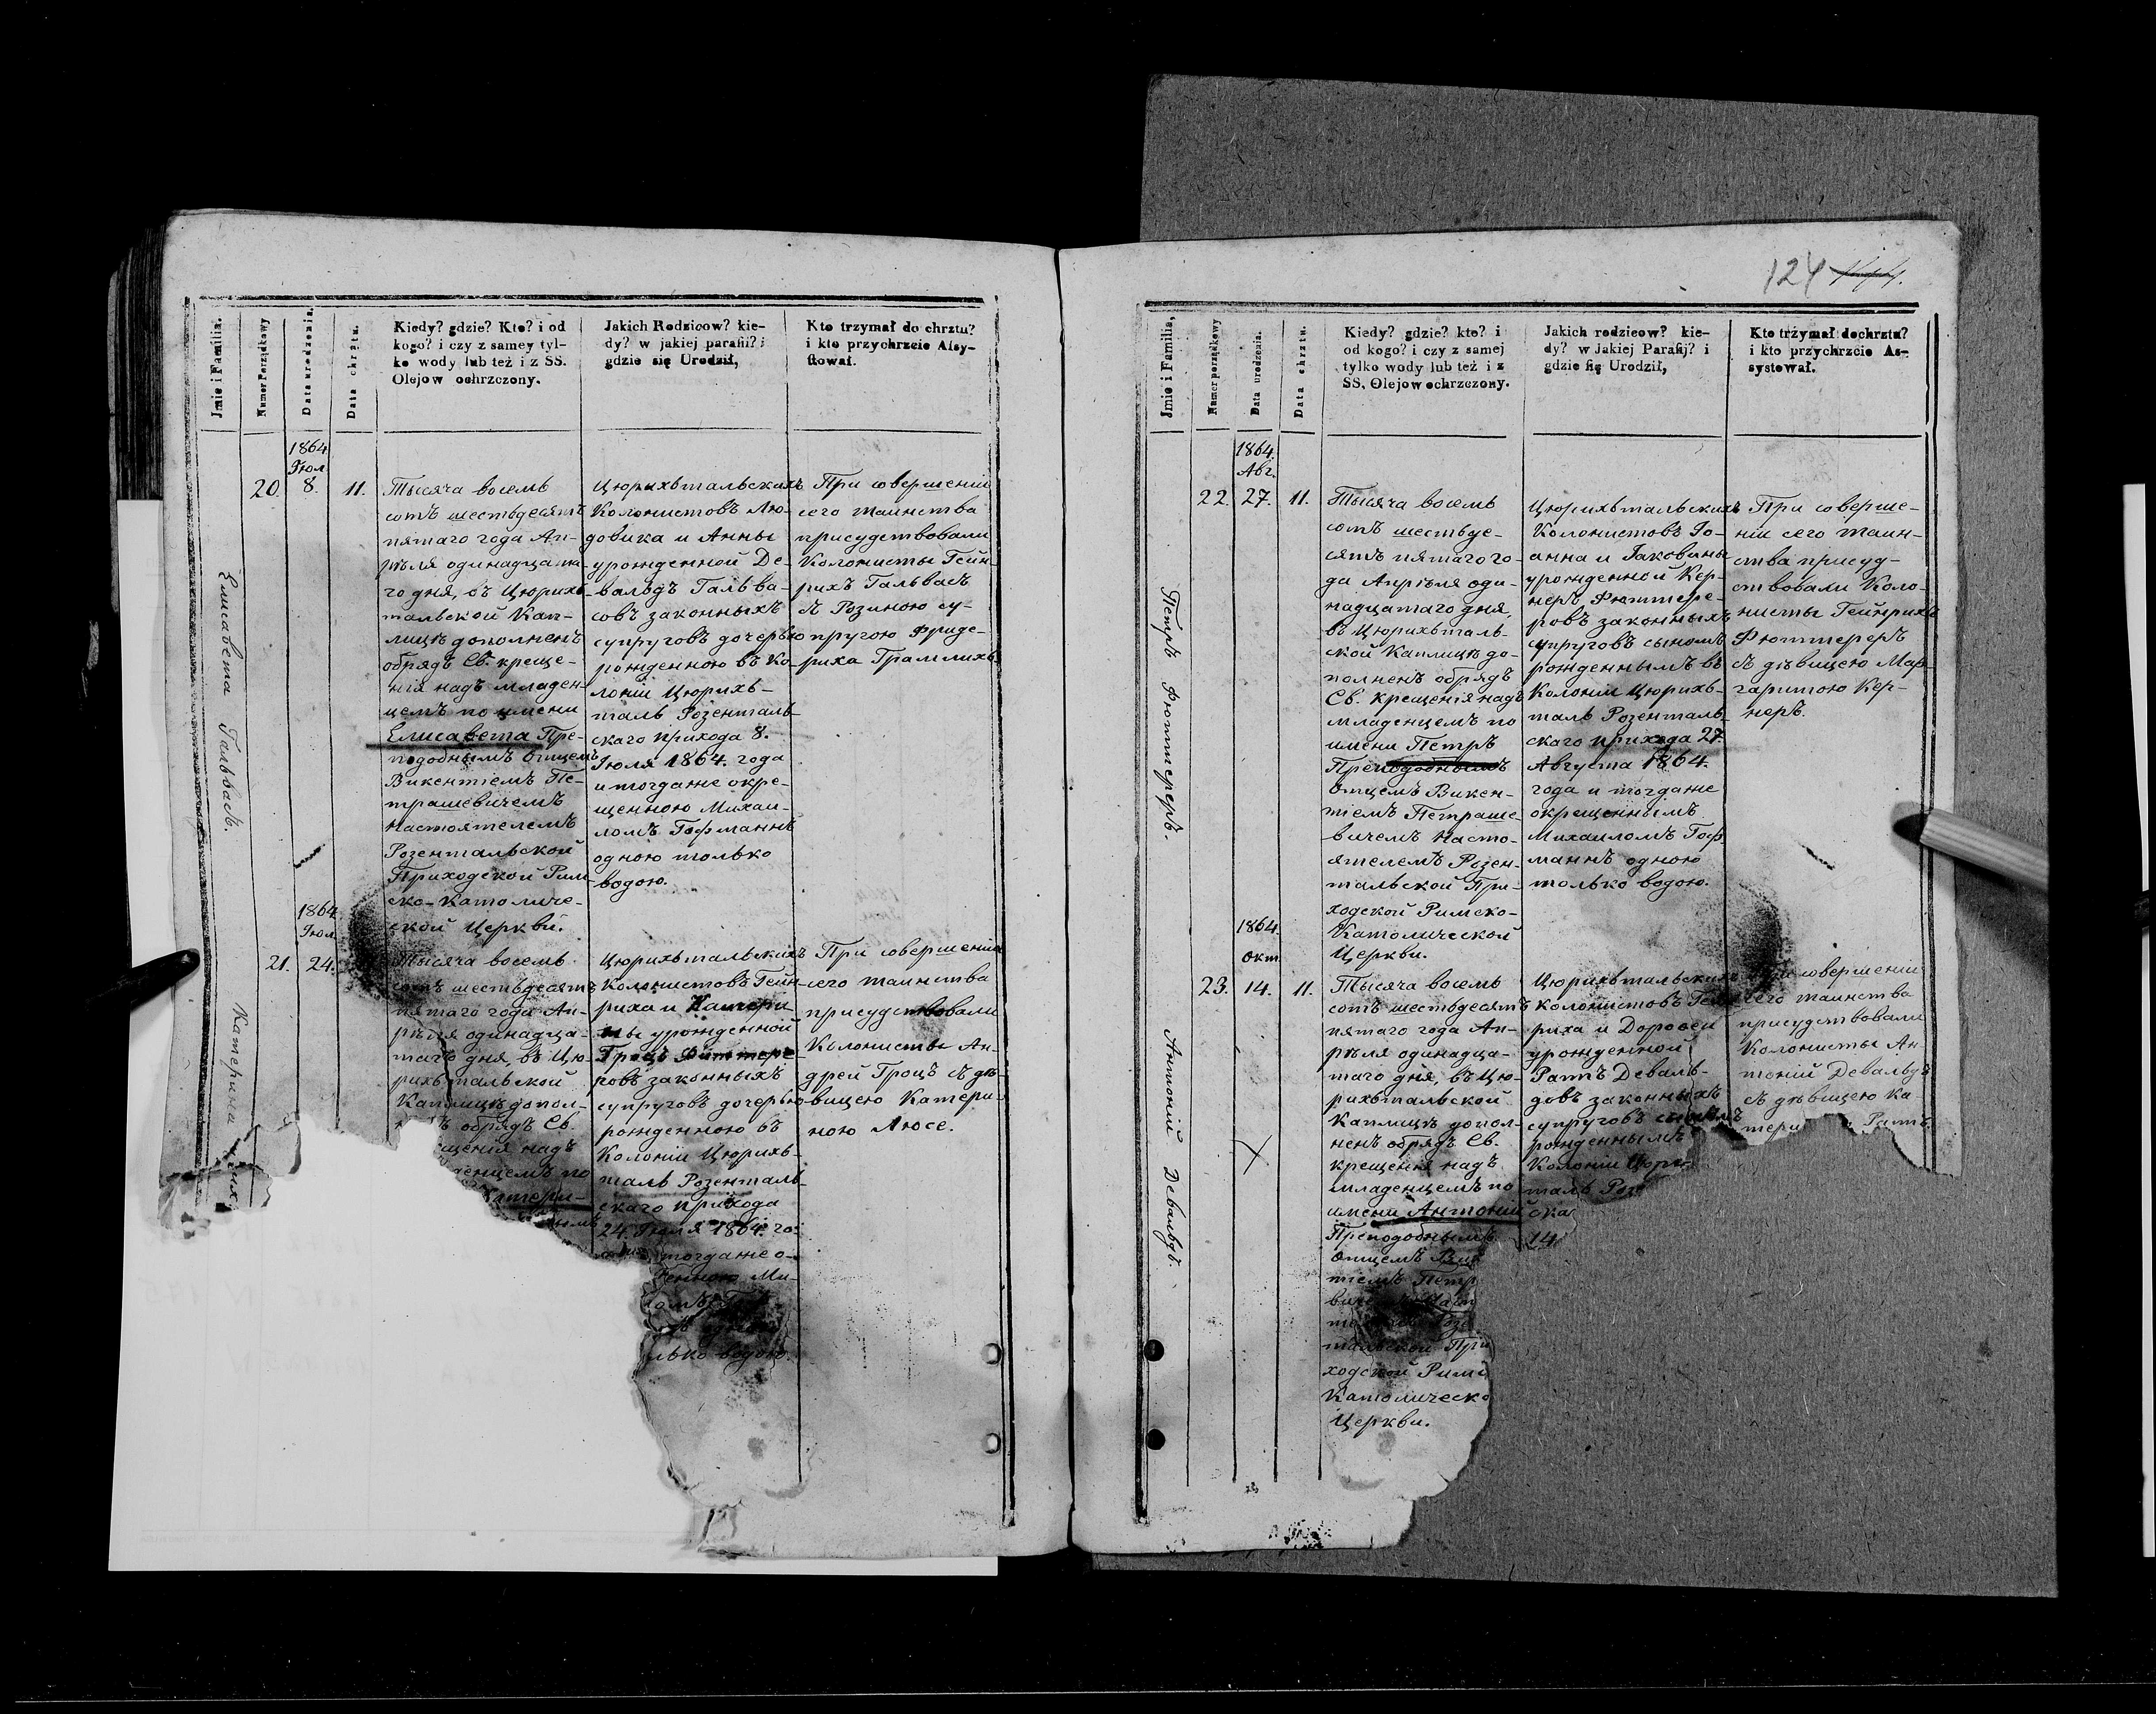 124
Jmie i Familia.
Numer Porządkowy
Data urodzenia.
Data chrztu.
Kiedy? gdzie? Kto? i od
kogo? i czy z samey tyl-
ko wody lub też i z SS.
Olejow ochrzczony.
Jakich Rodzicow? kie-
dy? w jakiej parafii? i
gdzie się Urodził,
Kto trzymał do chrztu?
i kto przychrzcie Assy-
stował.
Елисавета Гальвасъ.
1864
Iюл.
20. 8. 11.
Тысяча восемь
сотъ шестьдесятъ
пятаго года Ап-
рѣля одинадцата-
го дня, въ Цюрихь-
тальской Кап-
лицѣ дополненъ
обрядъ Св. креще-
нія надъ младен-
цемъ по имени
Елисавета Пре-
подобнымъ Отцемъ
Викентіемъ Пе-
трашевичемъ
Настоятелемъ
Розентальской
Приходской Рим-
ско-Католиче-
ской Церкви.
Цюрихьтальскихъ
Колонистовъ Лю-
довика и Анны
урожденной Де-
вальдъ Гальва-
совъ законныхъ
супруговъ дочерью
рожденною въ Ко-
лоніи Цюрихь-
таль Розенталь-
скаго прихода 8.
Iюля 1864. года
и тогда же окре-
щенною Михаи-
ломъ Гофманнъ
одною только
водою.
При совершеніи
сего таинства
присудствовали
Колонисты Гейн-
рихъ Гальвасъ
съ Розиною су-
пругою Фриде-
риха Грамлихъ.
Катерина
1864.
Iюл.
21. 24.
Тысяча восемь
сотъ шестьдесятъ
пятаго года Ап-
рѣля одинадца-
таго дня, въ Цю-
рихьтальской
Каплицѣ допол-
обрядъ Св.
щенія надъ
денцемъ по
Цюрихьтальскихъ
Колонистовъ Гейн-
риха и Катери-
ны урожденной
Гроцъ Фюттере-
ровъ законныхъ
супруговъ дочерью
рожденною въ
Колоніи Цюрихь-
таль Розенталь-
скаго прихода
24. Iюля 1864. го-
тогда же о-
щенною Ми-
лько водою.
При совершеніи
сего таинства
присудствовали
Колонисты Ан-
дрей Гроцъ съ дѣ-
вицею Катери-
ною Люсе.
Jmie i Familia,
Numer porządkowy
Data urodzenia.
Data chrztu.
Kiedy? gdzie? kto? i
od kogo? i czy z samej
tylko wody lub też i z
SS, Olejow ochrzczony.
Jakich rodzicow? kie-
dy? w Jakiej Parafij? i
gdzie się Urodził,
Kto trżymał dochrztu?
i kto przychrzcie As-
systował.
Петръ Фюттереръ.
1864.
Авг.
22. 27. 11.
Тысяча восемь
сотъ шестьде-
сятъ пятаго го-
да Апрѣля оди-
надцатаго дня,
въ Цюрихьталь-
ской Каплицѣ до-
полненъ обрядъ
Св. Крещенія надъ
младенцемъ по
имени Петръ
Преподобнымъ
Отцемъ Викен-
тіемъ Петраше-
вичемъ Насто-
ятелемъ Розен-
тальской При-
ходской Римско-
Католической
Церкви.
Цюрихьтальскихъ
Колонистовъ Iо-
анна и Iаковины
урожденной Кер-
неръ Фюттере-
ровъ законныхъ
супруговъ сыномъ
рожденнымъ въ
Колоніи Цюрихь-
таль Розенталь-
скаго прихода 27.
Августа 1864.
года и тогда же
окрещеннымъ
Михаиломъ Гоф-
маннъ одною
только водою.
При соверше-
ніи сего таин-
ства присуд-
ствовали Коло-
нисты Гейнрихъ
Фюттереръ
съ дѣвицею Мар-
гаритою Кер-
неръ.
Антоній Девальдъ.
1864.
Окт.
23. 14. 11.
Тысяча восемь
сотъ шестьдесятъ
пятаго года Ап-
рѣля одинадца-
таго дня, въ Цю-
рихьтальской
Каплицѣ допол-
ненъ обрядъ Св.
крещенія надъ
младенцемъ по
имени Антоній
Преподобнымъ
Отцемъ Вик
тіемъ Петр
тальской При
ходской Римс
Католическо
Церкви.
Цюрихьтальскихъ
Колонистовъ Гейн-
риха и Доровеи
урожденной
Ратъ Деваль-
довъ законныхъ
супруговъ сыномъ
рожденнымъ
Колоніи Цюри
таль Роз
ска
14
При совершеніи
сего таинства
присудствовали
Колонисты Ан-
тоній Девальдъ
съ дѣвицею Ка-
тери Ратъ.